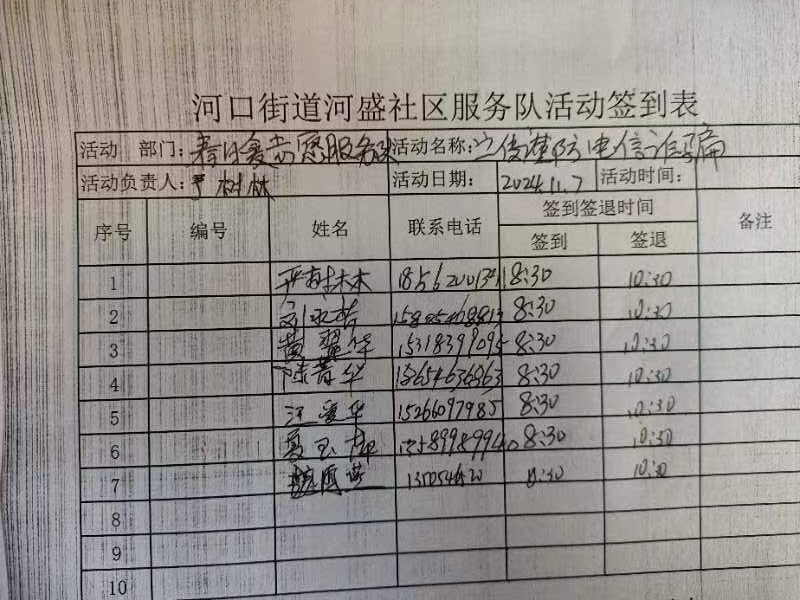 河口街道河盛社区服务队活动签到表
活动 部门：春日爱志愿服务队 活动名称：宣传谨防电信诈骗
活动负责人：严树林 活动日期：2024.11.7 活动时间：
序号 编号 姓名 联系电话 签到签退时间 备注
签到 签退
1 严树林 8:30 10:30
2 刘永 8:30 10:30
3 黄翠华 15318399095 8:30 10:30
4 陈菁华 13654636363 8:30 10:30
5 汪爱华 15266097985 8:30 10:30
6 夏玉 13589989940 8:30 10:30
7 8:30 10:30
8
9
10